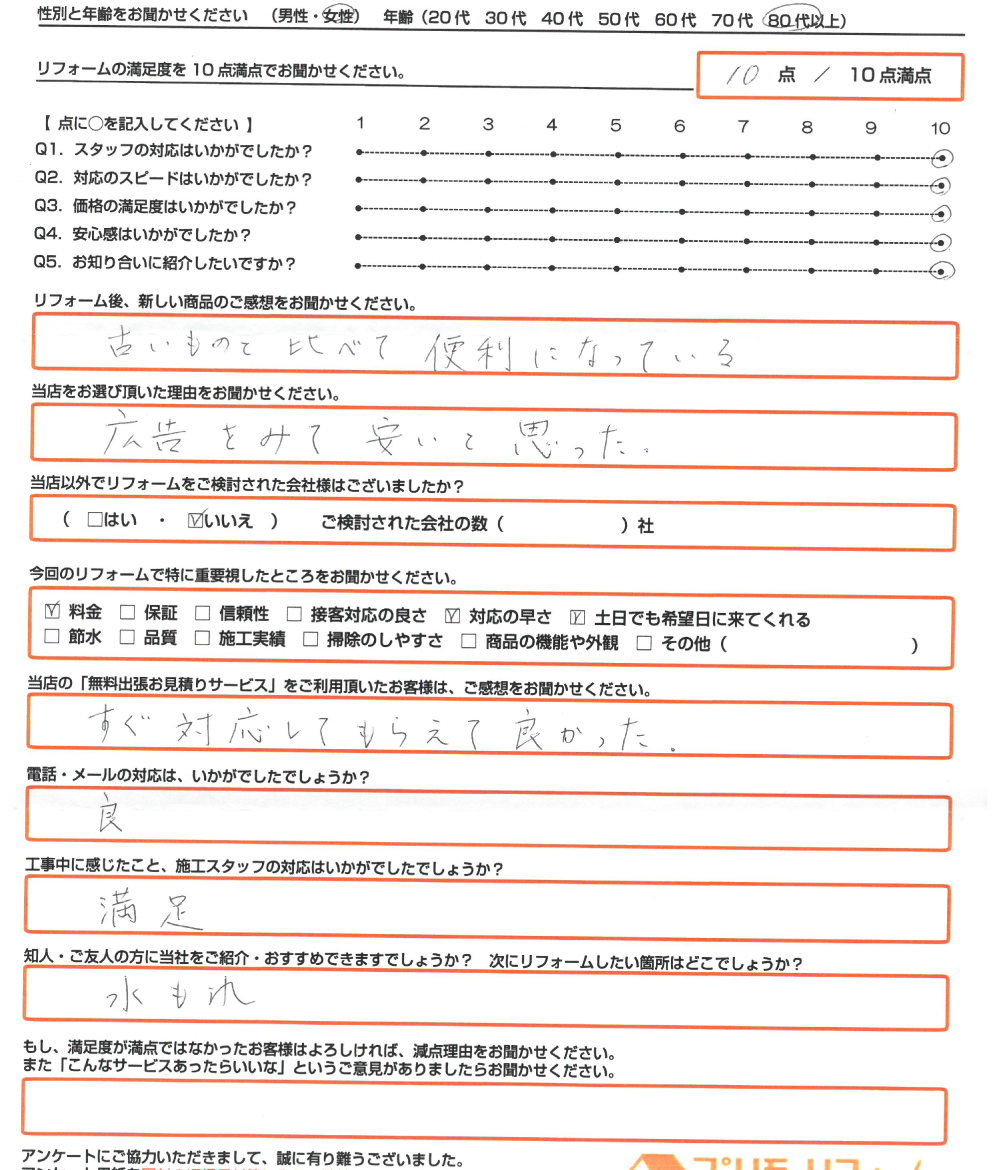 性別と年齢をお聞かせください （男性・女性） 年齢（20代 30代 40代 50代 60代 70代 80代以上）
リフォームの満足度を10点満点でお聞かせください。 10 点 / 10点満点
【 点に○を記入してください 】 1 2 3 4 5 6 7 8 9 10
Q1. スタッフの対応はいかがでしたか？
Q2. 対応のスピードはいかがでしたか？
Q3. 価格の満足度はいかがでしたか？
Q4. 安心感はいかがでしたか？
Q5. お知り合いに紹介したいですか？
リフォーム後、新しい商品のご感想をお聞かせください。
古いものと比べて便利になっている
当店をお選び頂いた理由をお聞かせください。
広告をみて安いと思った。
当店以外でリフォームをご検討された会社様はございましたか？
（ □はい ・ ☑いいえ ） ご検討された会社の数（ ）社
今回のリフォームで特に重要視したところをお聞かせください。
☑ 料金 □ 保証 □ 信頼性 □ 接客対応の良さ ☑ 対応の早さ ☑ 土日でも希望日に来てくれる
□ 節水 □ 品質 □ 施工実績 □ 掃除のしやすさ □ 商品の機能や外観 □ その他（ ）
当店の「無料出張お見積りサービス」をご利用頂いたお客様は、ご感想をお聞かせください。
すぐ対応してもらえて良かった。
電話・メールの対応は、いかがでしたでしょうか？
良
工事中に感じたこと、施工スタッフの対応はいかがでしたでしょうか？
満足
知人・ご友人の方に当社をご紹介・おすすめできますでしょうか？ 次にリフォームしたい箇所はどこでしょうか？
水もれ
もし、満足度が満点ではなかったお客様はよろしければ、減点理由をお聞かせください。
また「こんなサービスあったらいいな」というご意見がありましたらお聞かせください。
アンケートにご協力いただきまして、誠に有り難うございました。